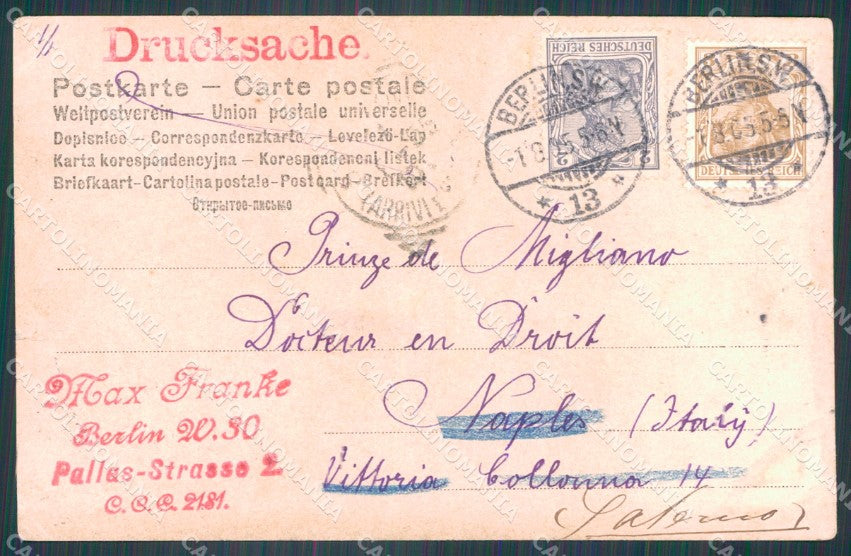 1/1
Drucksache.
Postkarte — Carte postale
Weltpostverein — Union postale universelle
Dopisnice — Correspondenzkarte — Levelező-Lap
Karta korespondencyjna — Korespondencni listek
Briefkaart - Cartolina postale - Post card - Brefkort
Открытое-письмо
DEUTSCHES REICH
2
BERLIN S.W.
-1.8.05.5-6N
* 13 *
DEUTSCHES REICH
BERLIN S.W.
-1.8.05.5-6N
* 13 *
Prinze de Migliano
Docteur en Droit
Naples (Italy)
Vittoria Collonna 14
Salerno
Max Franke
Berlin W.30
Pallas-Strasse 2.
C.C.C. 2181.
CARTOLINOMANIA